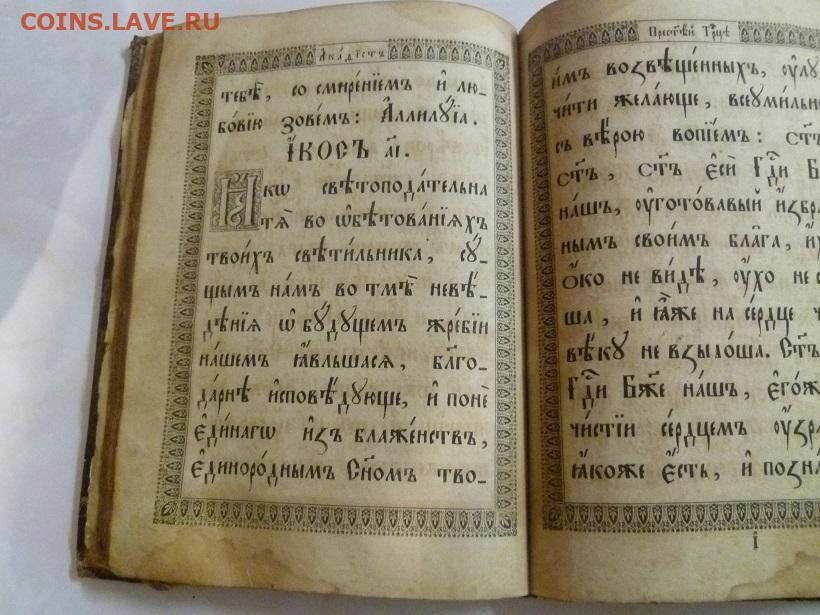 COINS.LAVE.RU
Акаѳістъ
тебѣ̀, со смире́нїемъ и҆ лю-
бо́вїю зове́мъ: А҆ллилꙋ́їа.
І҆́КОСЪ а҃і.
Ꙗ҆́кѡ свѣтопода́тельна
тѧ̀ во ѡ҆бѣтова́нїѧхъ
твои́хъ свѣти́льника, сꙋ́-
щымъ на́мъ во тмѣ̀ невѣ́-
дѣнїѧ ѡ҆ бꙋ́дꙋщемъ жре́бїи
на́шемъ ꙗ҆́вльшасѧ, бл҃го-
да́рнѣ и҆сповѣ́дꙋюще, и҆ понѐ
є҆ди́нагѡ и҆зъ блаже́нствъ,
є҆диноро́днымъ Сн҃омъ тво-
Прест҃ѣй Трⷪ҇цѣ
и́мъ возвѣще́нныхъ, ᲂу҆лꙋ-
чи́ти жела́юще, всеуми́льн
съ вѣ́рою вопїе́мъ: ст҃ъ
ст҃ъ, ст҃ъ є҆сѝ гдⷭ҇и б
на́шъ, ᲂу҆гото́вавый и҆збра
нымъ свои́мъ блага̑,
ѻ҆́ко не ви́дѣ, ᲂу҆́хо не с
ша, и҆ ꙗ҆́же на се́рдце ч
вѣ́кꙋ не взыдо́ша. Ст҃ъ
гдⷭ҇и бж҃е на́шъ, є҆го́ж
чи́стїи се́рдцемъ ᲂу҆́зр
ꙗ҆́коже є҆́сть, и҆ позна
і҃